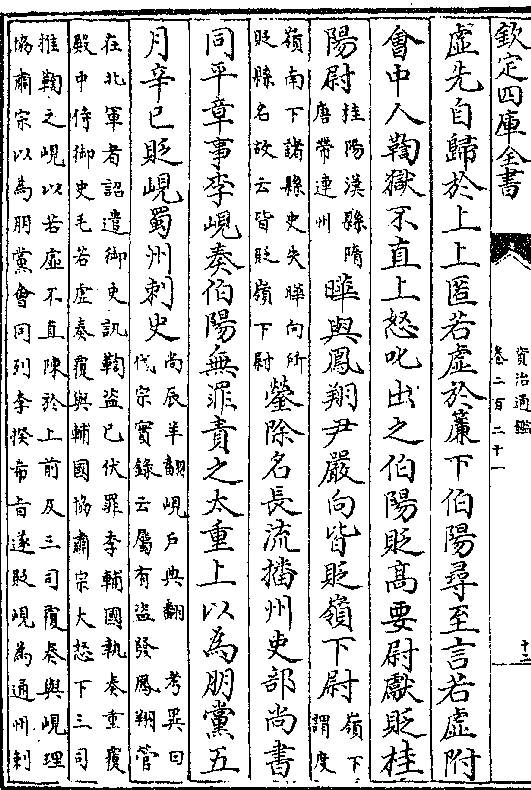 欽定四庫全書
資治通鑑
卷二百二十一
十二
虛先自歸於上上匿若虛於簾下伯陽尋至言若虛附
會中人鞫獄不直上怒叱出之伯陽貶髙要尉獻貶桂
陽尉桂陽漢縣隋唐帶連州曄與鳳翔尹嚴向皆貶嶺下尉嶺下謂度
嶺南下諸縣史失曄向所貶縣名故云皆貶嶺下尉鎣除名長流播州吏部尚書
同平章事李峴奏伯陽無罪責之太重上以為朋黨五
月辛巳貶峴蜀州刺史尚辰羊翻峴戸典翻考異曰代宗實錄云屬有盜發鳳翔管
在北軍者詔遣御史訊鞫盜已伏罪李輔國執奏重覆
殿中侍御史毛若虛奏覆與輔國協肅宗大怒下三司
推鞫之峴以若虛不直陳於上前及三司覆奏與峴理
協肅宗以為朋黨會同列李揆希旨遂貶峴為通州刺